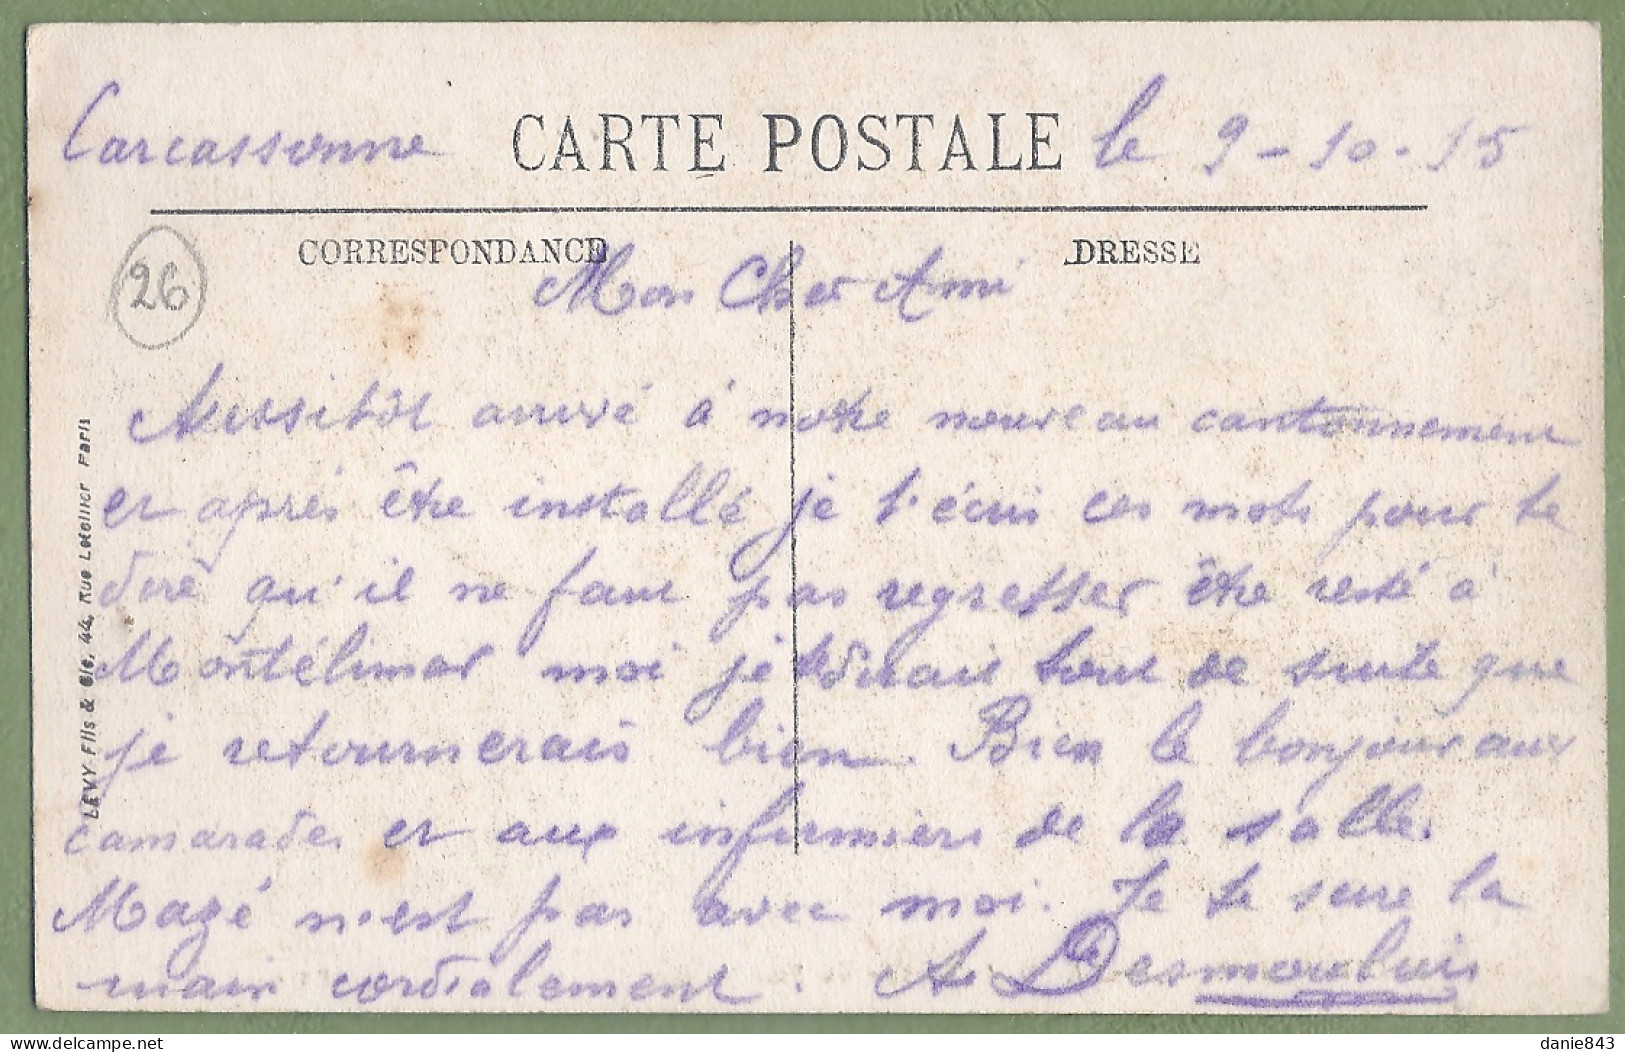 Carcassonne CARTE POSTALE le 9-10-15
CORRESPONDANCE DRESSE
26
Mon Cher Ami
Aussitôt arrivé à notre nouveau cantonnement
et après être installé je t'écris ces mots pour te
dire qu'il ne faut pas regretter être resté à
Montélimar moi je tout de suite que
je retournerais bien. Bien le bonjour aux
camarades et aux infirmiers de la salle.
Mazé n'est pas avec moi. Je te serre la
main cordialement. A. Desmouluis
LEVY Fils & Cie, 44, Rue Letellier Paris
danie843